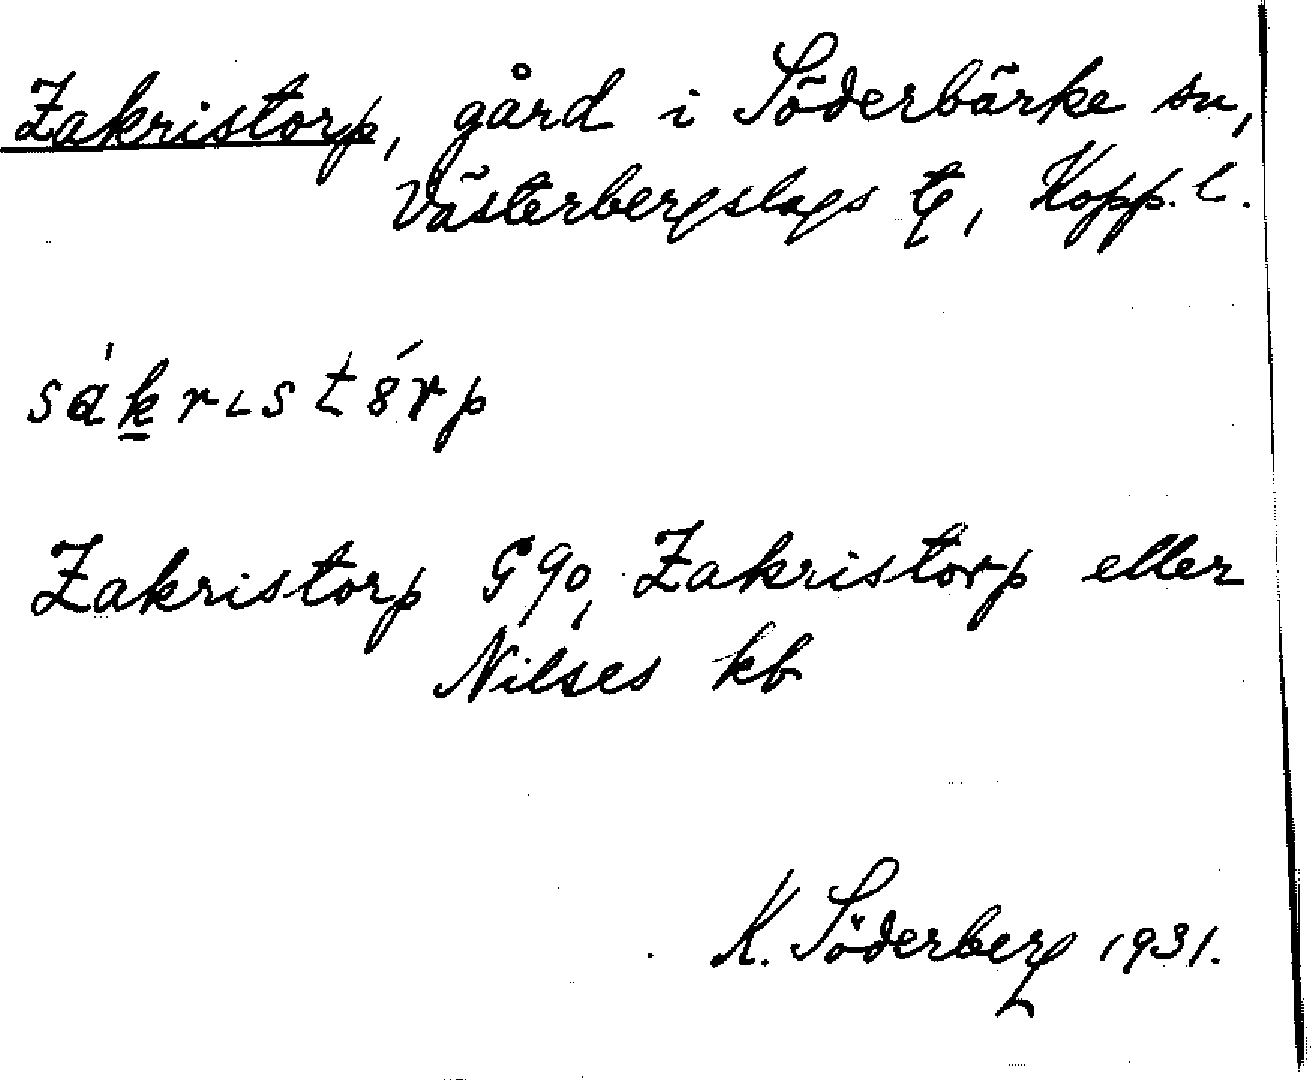 Zakristorp, gård i Söderbärke sn,
Västerbergslags tg, Kopp. l.
sákrıstórp
Zakristorp G 90, Zakristorp eller
Nilses kb
K. Söderberg 1931.